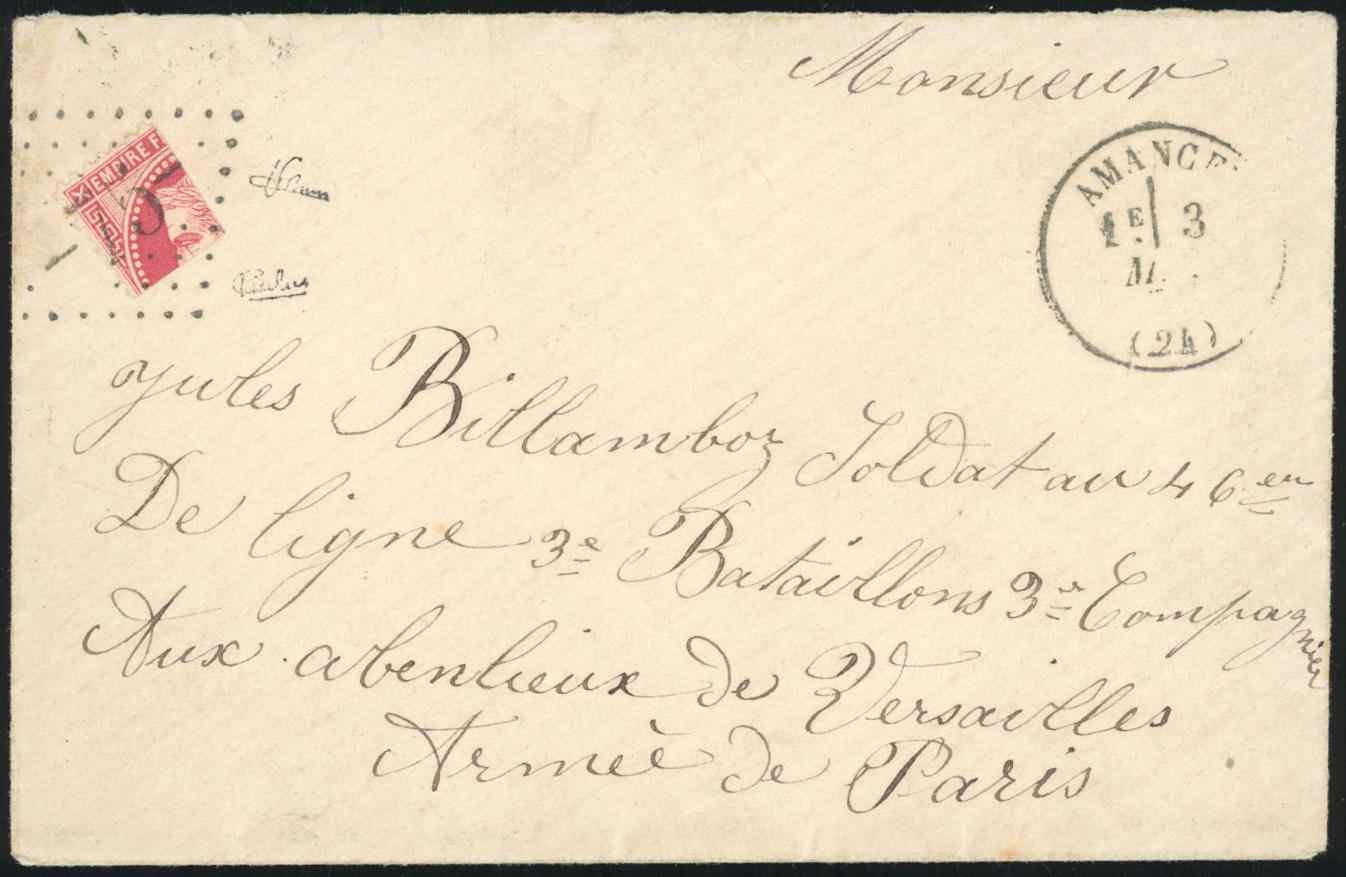 Monsieur
EMPIRE F
5
AMANCE
1E 3
M
(24)
Jules Billamboz Soldat au 46em
De ligne 3e Bataillons 3me Compagnies
Aux abenlieux de Versailles
Armée de Paris